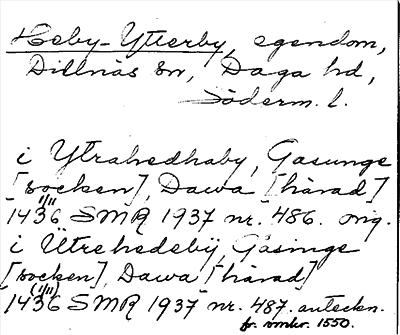 Heby-Ytterby, egendom,
Dillnäs sn, Daga hd,
Söderm. l.
i Ytrahedhaby, Gasunge
[socken], Dawa [härad]
1/11
1436 SMR 1937 nr. 486. orig.
i Ütrehedebÿ, Gåsinge
[socken], Dawa [härad]
(1/11)
1436 SMR 1937 nr. 487. anteckn.
fr. omkr. 1550.